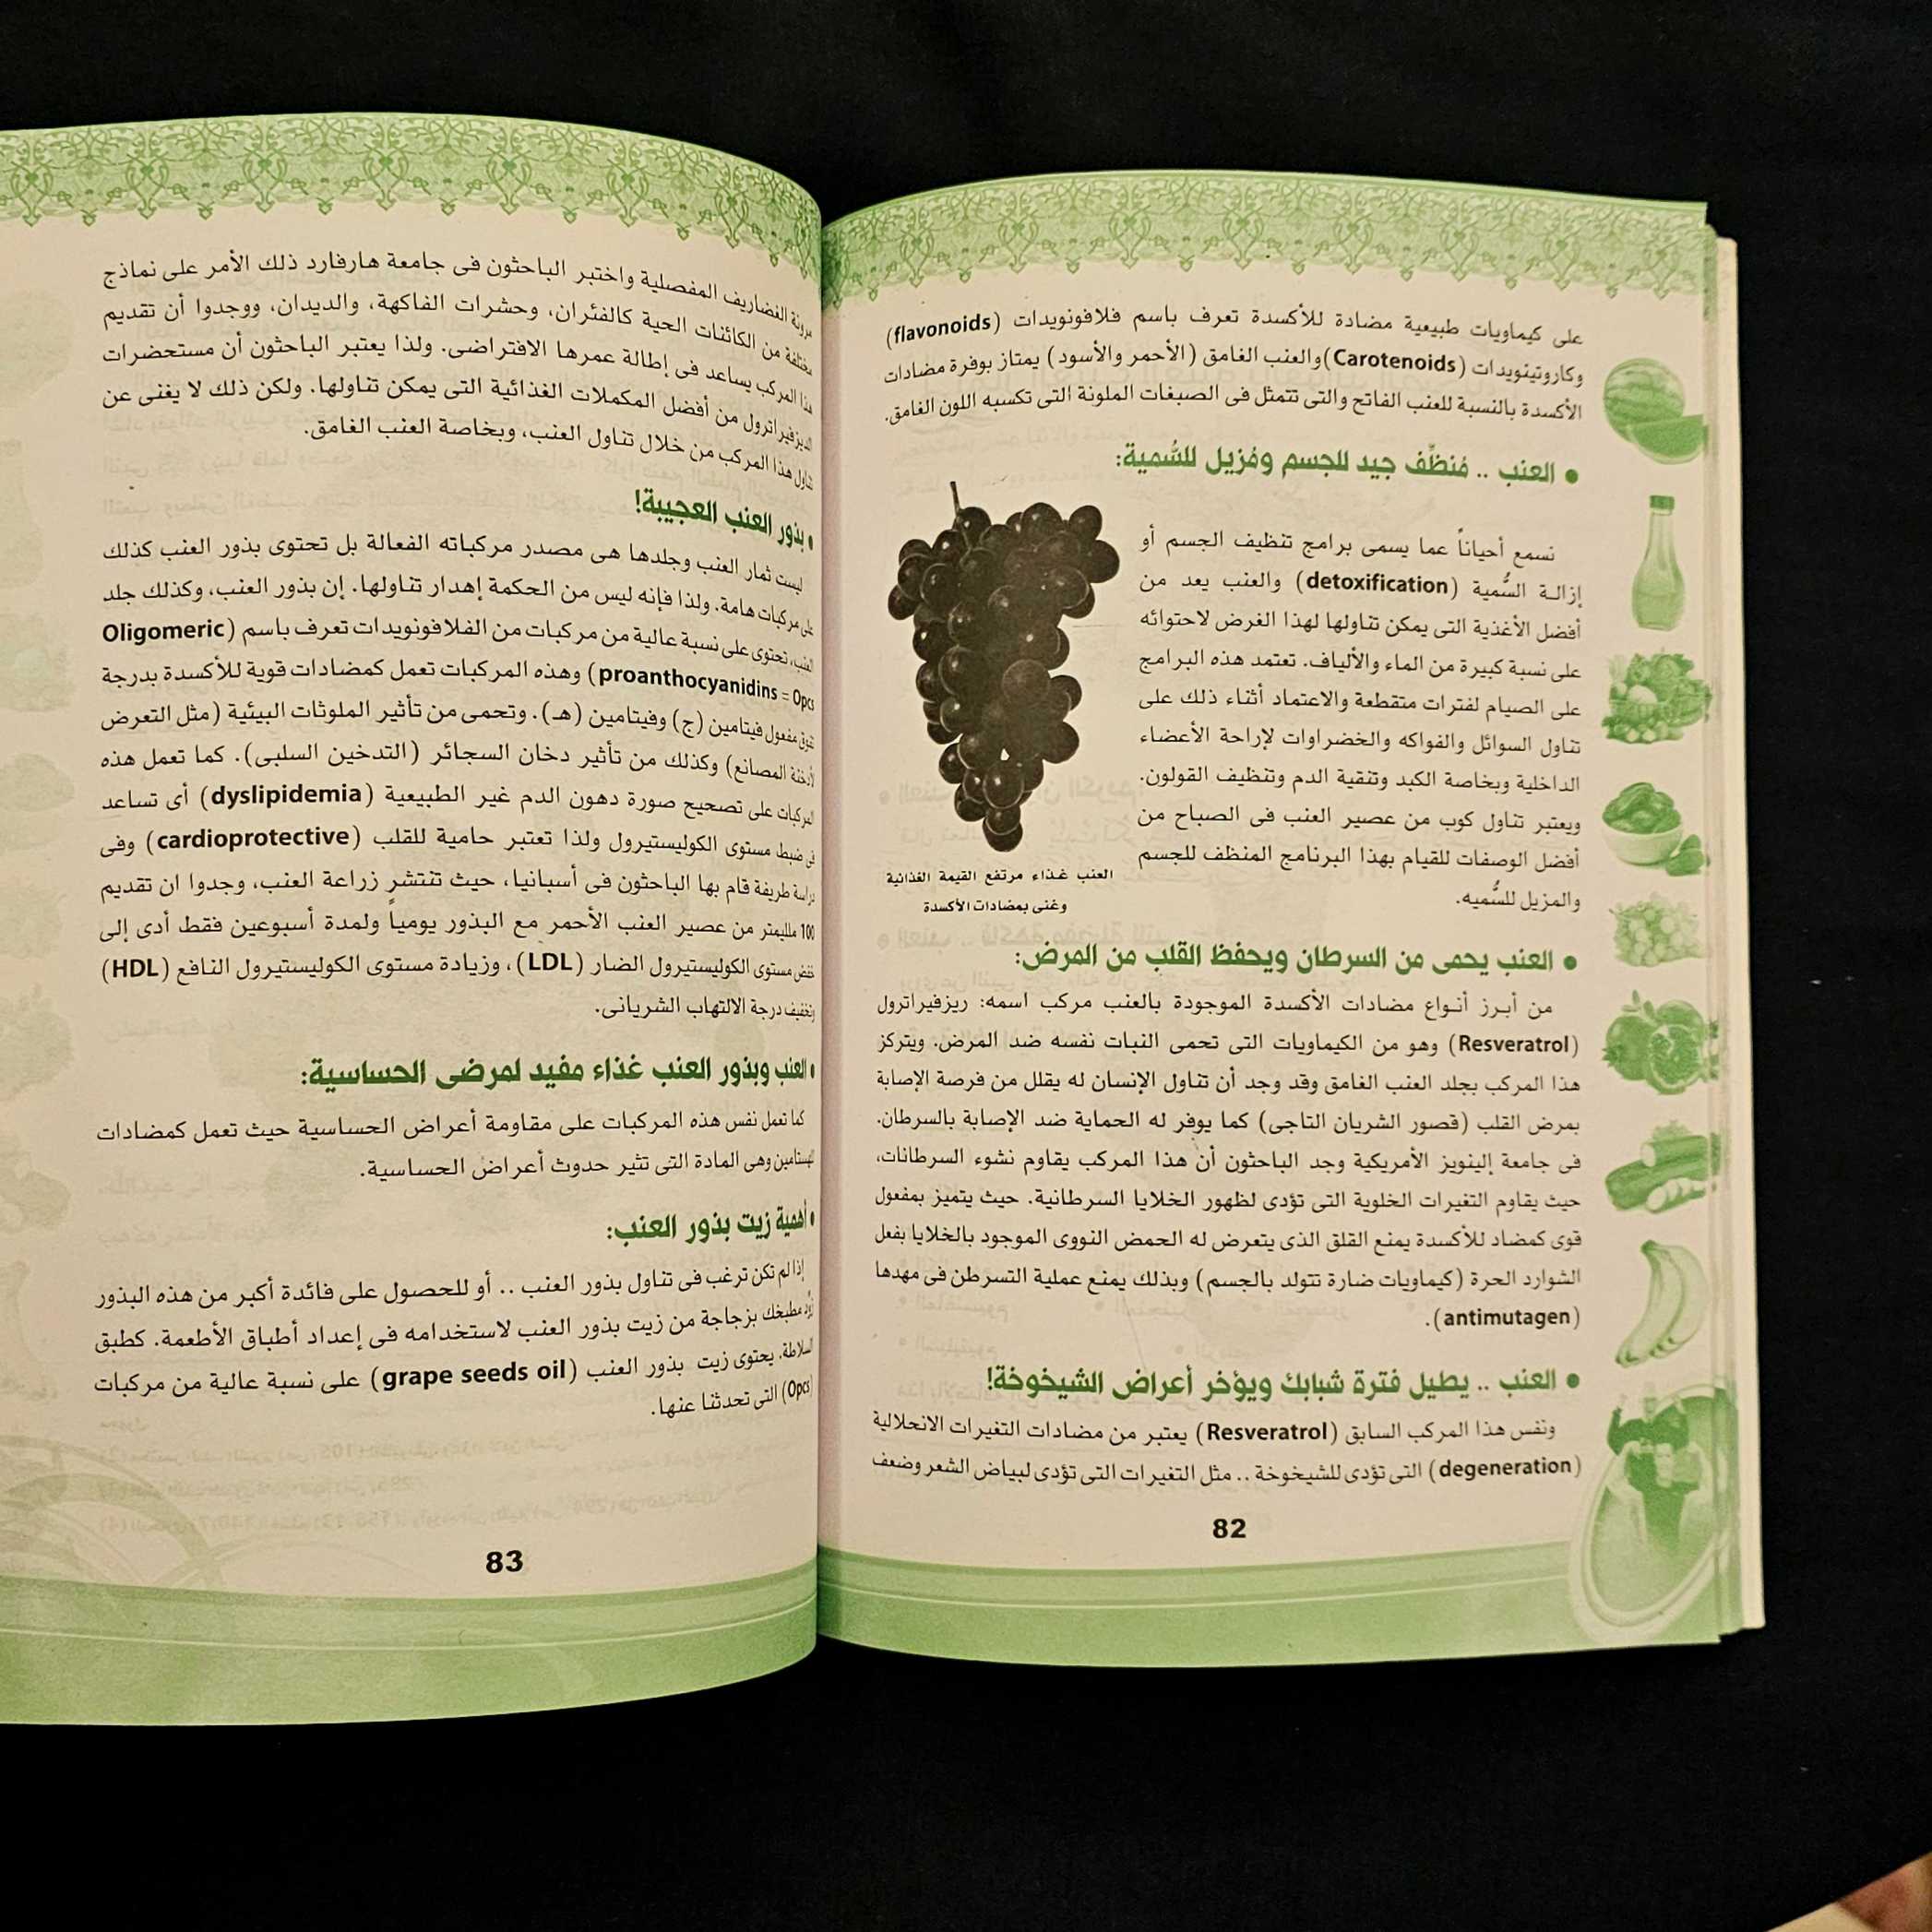 على كيماويات طبيعية مضادة للأكسدة تعرف باسم فلافونويدات (flavonoids)
وكاروتينويدات (Carotenoids) والعنب الغامق (الأحمر والأسود) يمتاز بوفرة مضادات
الأكسدة بالنسبة للعنب الفاتح والتى تتمثل فى الصبغات الملونة التى تكسبه اللون الغامق.
• العنب .. مُنظِّف جيد للجسم ومُزيل للسُّمية:
نسمع أحياناً عما يسمى برامج تنظيف الجسم أو
إزالـة السُّمية (detoxification) والعنب يعد من
أفضل الأغذية التى يمكن تناولها لهذا الغرض لاحتوائه
على نسبة كبيرة من الماء والألياف. تعتمد هذه البرامج
على الصيام لفترات متقطعة والاعتماد أثناء ذلك على
تناول السوائل والفواكه والخضراوات لإراحة الأعضاء
الداخلية وبخاصة الكبد وتنقية الدم وتنظيف القولون.
ويعتبر تناول كوب من عصير العنب فى الصباح من
أفضل الوصفات للقيام بهذا البرنامج المنظف للجسم
والمزيل للسُّميه.
العنب غـذاء مرتفع القيمة الغذائية
وغنى بمضادات الأكسدة
• العنب يحمى من السرطان ويحفظ القلب من المرض:
من أبـرز أنـواع مضادات الأكسدة الموجودة بالعنب مركب اسمه: ريزفيراترول
(Resveratrol) وهو من الكيماويات التى تحمى النبات نفسه ضد المرض. ويتركز
هذا المركب بجلد العنب الغامق وقد وجد أن تناول الإنسان له يقلل من فرصة الإصابة
بمرض القلب (قصور الشريان التاجى) كما يوفر له الحماية ضد الإصابة بالسرطان.
فى جامعة إلينويز الأمريكية وجد الباحثون أن هذا المركب يقاوم نشوء السرطانات،
حيث يقاوم التغيرات الخلوية التى تؤدى لظهور الخلايا السرطانية. حيث يتميز بمفعول
قوى كمضاد للأكسدة يمنع القلق الذى يتعرض له الحمض النووى الموجود بالخلايا بفعل
الشوارد الحرة (كيماويات ضارة تتولد بالجسم) وبذلك يمنع عملية التسرطن فى مهدها
(antimutagen).
• العنب .. يطيل فترة شبابك ويؤخر أعراض الشيخوخة!
ونفس هذا المركب السابق (Resveratrol) يعتبر من مضادات التغيرات الانحلالية
(degeneration) التى تؤدى للشيخوخة .. مثل التغيرات التى تؤدى لبياض الشعر وضعف
82
مرونة الغضاريف المفصلية واختبر الباحثون فى جامعة هارفارد ذلك الأمر على نماذج
مختلفة من الكائنات الحية كالفئران، وحشرات الفاكهة، والديدان، ووجدوا أن تقديم
هذا المركب يساعد فى إطالة عمرها الافتراضى. ولذا يعتبر الباحثون أن مستحضرات
الريزفيراترول من أفضل المكملات الغذائية التى يمكن تناولها. ولكن ذلك لا يغنى عن
تناول هذا المركب من خلال تناول العنب، وبخاصة العنب الغامق.
• بذور العنب العجيبة!
ليست ثمار العنب وجلدها هى مصدر مركباته الفعالة بل تحتوى بذور العنب كذلك
على مركبات هامة. ولذا فإنه ليس من الحكمة إهدار تناولها. إن بذور العنب، وكذلك جلد
العنب، تحتوى على نسبة عالية من مركبات من الفلافونويدات تعرف باسم (Oligomeric
proanthocyanidins = Opcs) وهذه المركبات تعمل كمضادات قوية للأكسدة بدرجة
تفوق مفعول فيتامين (ج) وفيتامين (هـ). وتحمى من تأثير الملوثات البيئية (مثل التعرض
لأدخنة المصانع) وكذلك من تأثير دخان السجائر (التدخين السلبى). كما تعمل هذه
المركبات على تصحيح صورة دهون الدم غير الطبيعية (dyslipidemia) أى تساعد
فى ضبط مستوى الكوليستيرول ولذا تعتبر حامية للقلب (cardioprotective) وفى
دراسة طريفة قام بها الباحثون فى أسبانيا، حيث تنتشر زراعة العنب، وجدوا ان تقديم
100 ملليمتر من عصير العنب الأحمر مع البذور يومياً ولمدة أسبوعين فقط أدى إلى
خفض مستوى الكوليستيرول الضار (LDL)، وزيادة مستوى الكوليستيرول النافع (HDL)
وتخفيف درجة الالتهاب الشريانى.
• العنب وبذور العنب غذاء مفيد لمرضى الحساسية:
كما تعمل نفس هذه المركبات على مقاومة أعراض الحساسية حيث تعمل كمضادات
للهستامين وهى المادة التى تثير حدوث أعراض الحساسية.
• أهمية زيت بذور العنب:
إذا لم تكن ترغب فى تناول بذور العنب .. أو للحصول على فائدة أكبر من هذه البذور
زوِّد مطبخك بزجاجة من زيت بذور العنب لاستخدامه فى إعداد أطباق الأطعمة. كطبق
السلاطة. يحتوى زيت بذور العنب (grape seeds oil) على نسبة عالية من مركبات
(Opcs) التى تحدثنا عنها.
83